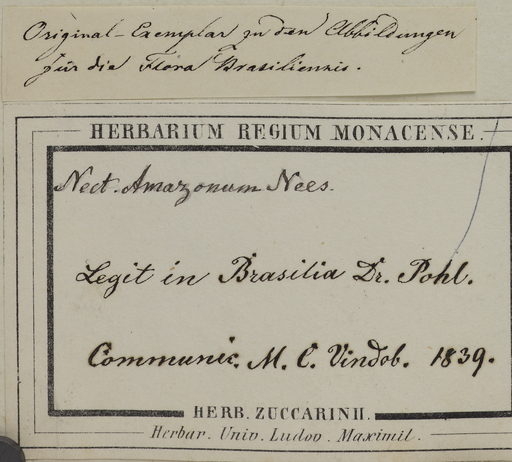 Original-Exemplar zu den Abbildungen
für die Flora Brasiliensis.
HERBARIUM REGIUM MONACENSE.
Nect. Amazonum Nees.
Legit in Brasilia Dr. Pohl.
Communic. M. C. Vindob. 1839.
HERB. ZUCCARINII.
Herbar. Univ. Ludov. Maximil.